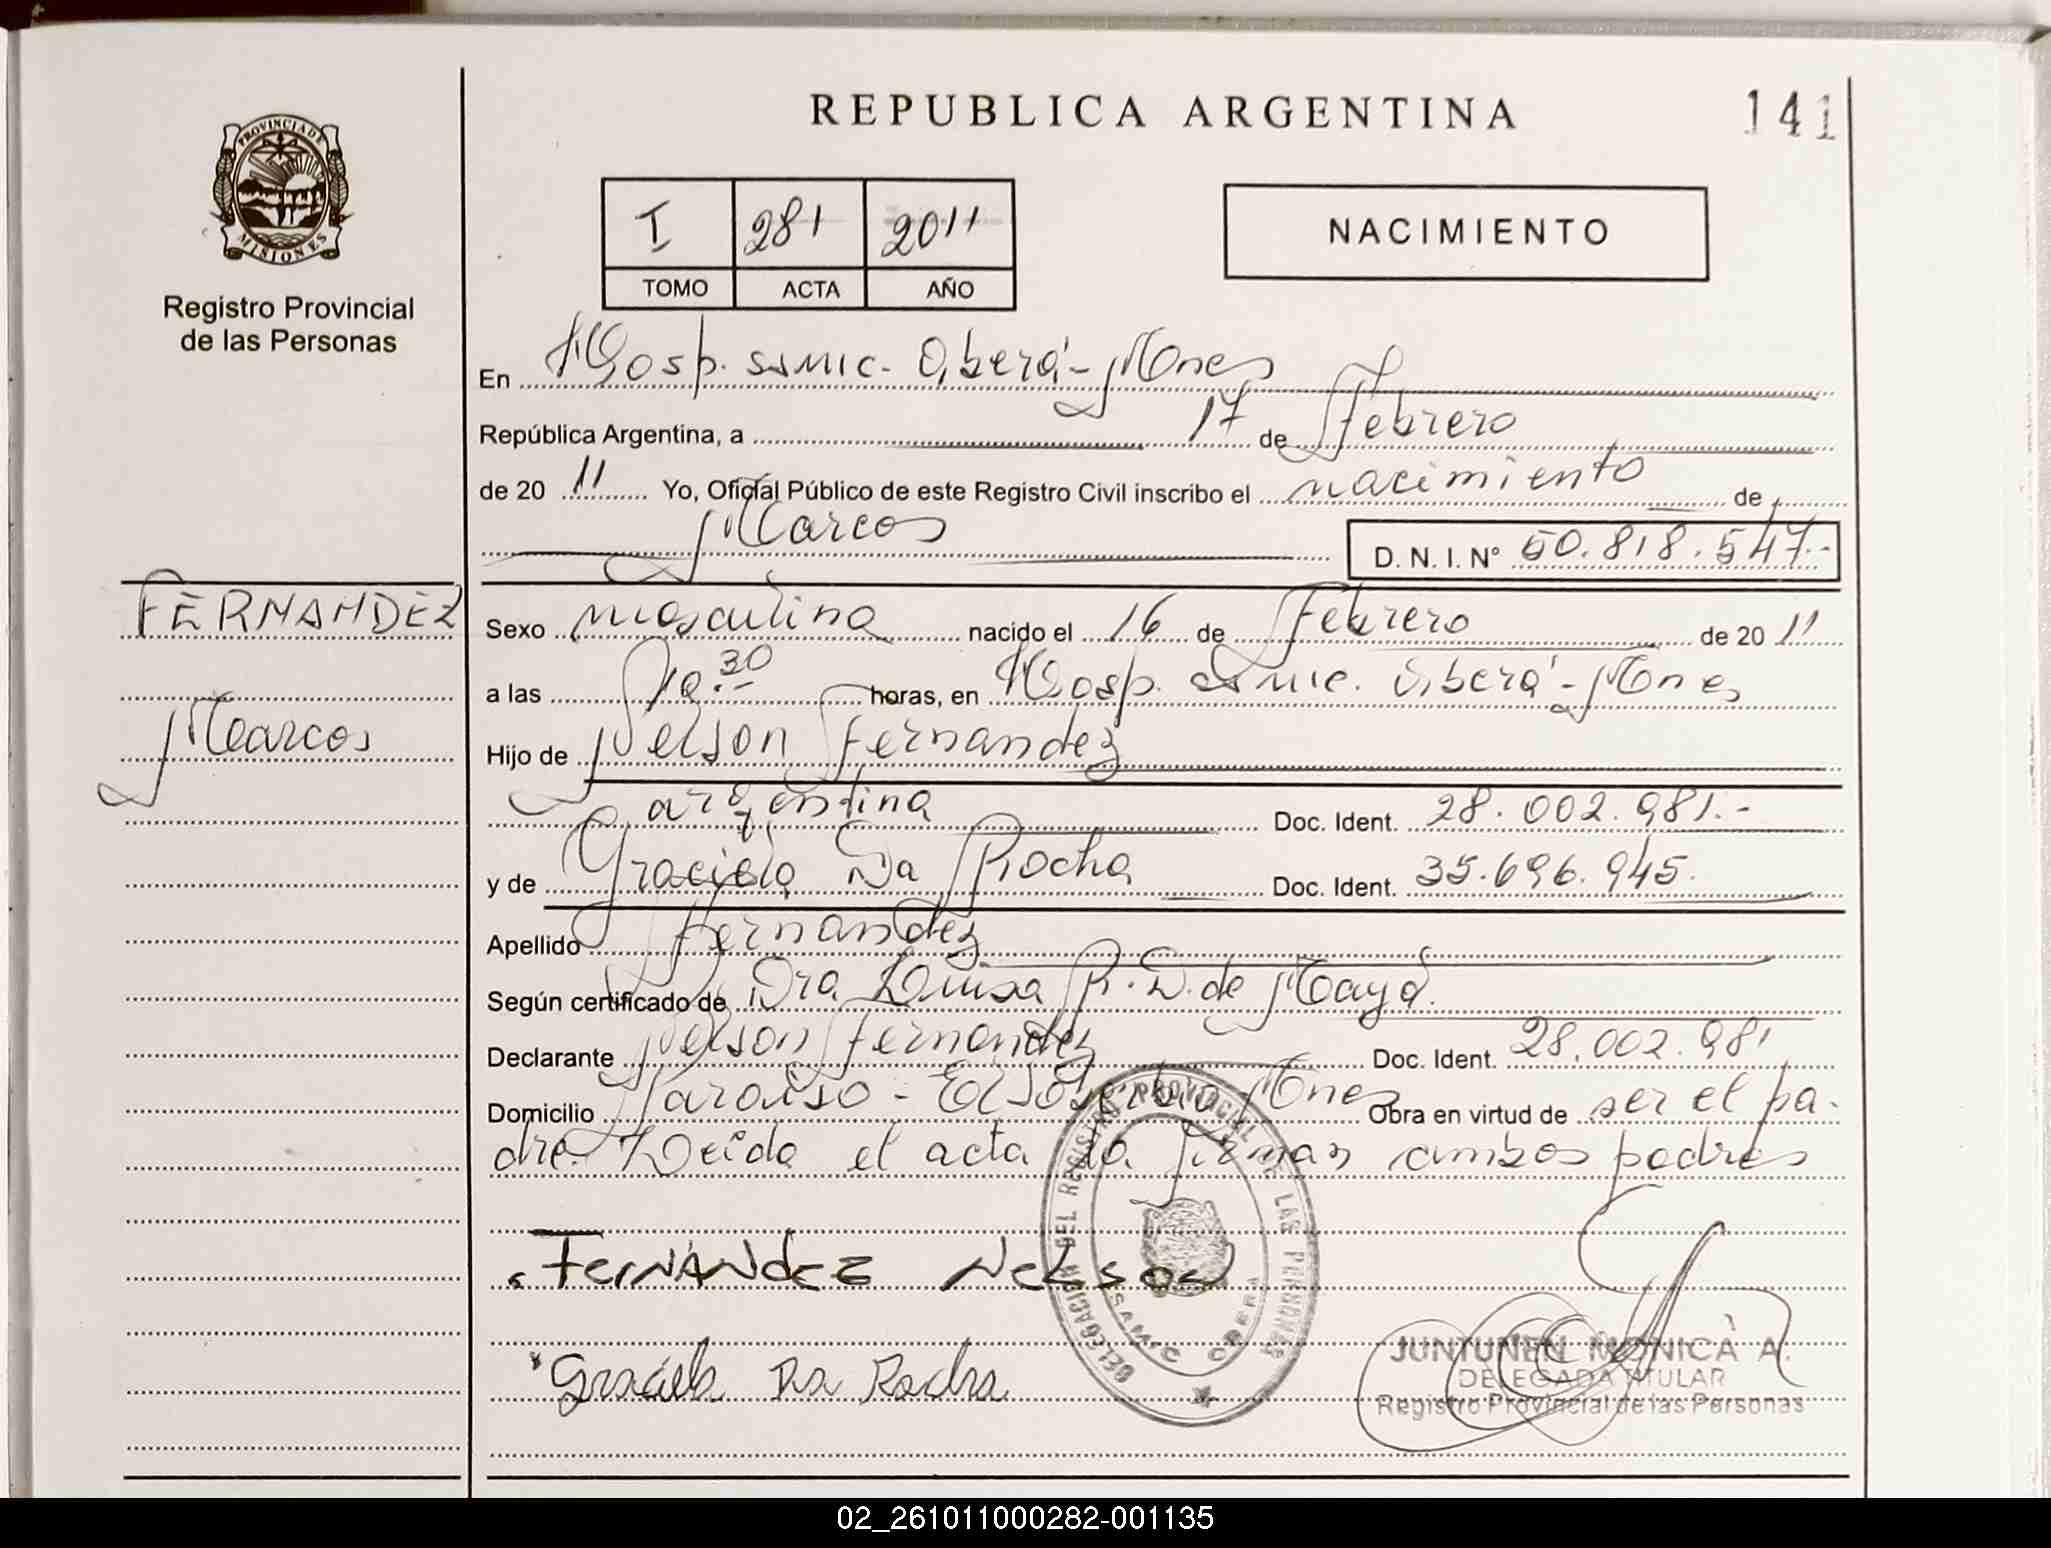 REPUBLICA ARGENTINA
141
PROVINCIA DE
MISIONES
Registro Provincial
de las Personas
I 281 2011
TOMO ACTA AÑO
NACIMIENTO
En Hosp. samic. Oberá - Mnes
República Argentina, a 17 de Febrero
de 20 11 Yo, Oficial Público de este Registro Civil inscribo el nacimiento de
Marcos D. N. I. Nº 50.818.547.-
FERNANDEZ
Marcos
Sexo masculino nacido el 16 de Febrero de 20 11
a las horas, en Hosp. samic. Oberá - Mnes
Hijo de Nelson Fernandez
argentina Doc. Ident. 28.002.981.-
y de Graciela Da Rocha Doc. Ident. 35.696.945.
Apellido Fernandez
Según certificado de Dra Luisa R. D. de Maya.
Declarante Nelson Fernandez Doc. Ident. 28.002.981
Domicilio Paraiso - El Soberbio Mnes Obra en virtud de ser el pa-
dre. Leida el acta la firman ambos padres
FERNÁNdEZ NELSON
Graciela Da Rocha
DELEGACION DEL REGISTRO PROVINCIAL DE LAS PERSONAS
SAMIC OBERA
JUNTUNEN MONICA A.
DELEGADA TITULAR
Registro Provincial de las Personas
02_261011000282-001135